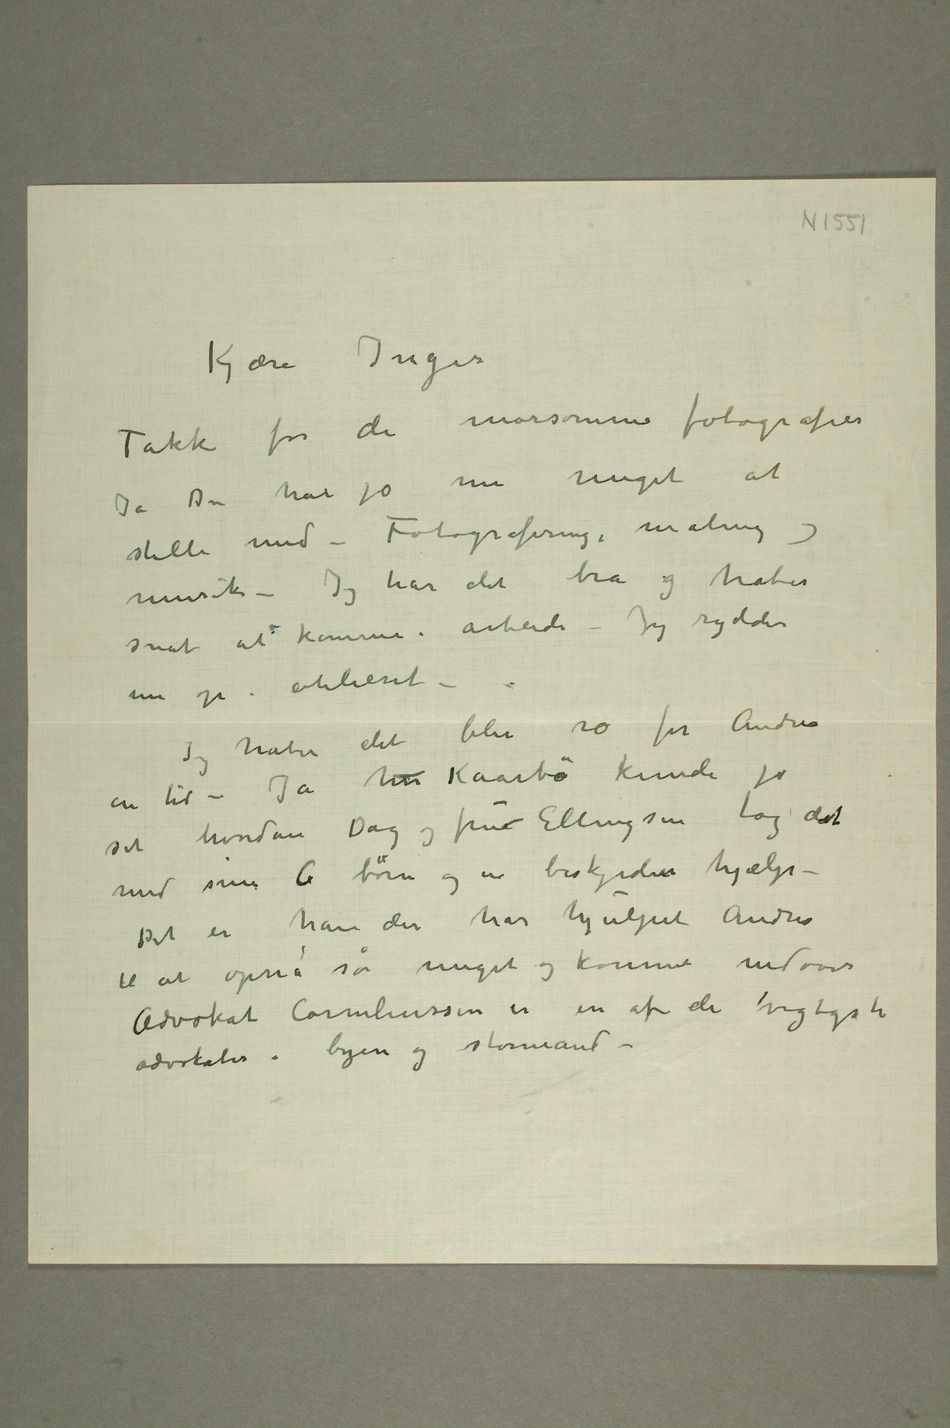 N 1551
Kjære Inger
Takk for de morsomme fotografier
Ja Du har jo nu meget at
stelle med – Fotografering, maling og
musik – Jeg har det bra og haaber
snat at komme i arbeide – Jeg rydder
nu op i atelieret –
Jeg haaber det blir ro for Andrea
en tid – Ja Kaarbö kunde jo
set hvordan Dag og fru Ellingsen tog det
med sine 6 börn og en beskjeden hjælp –
Det er han der har hjulpet Andrea
til at opnå så meget og komme nedover
Advokat Corneliussen er en af de vigtigste
advokater i byen og stormand –